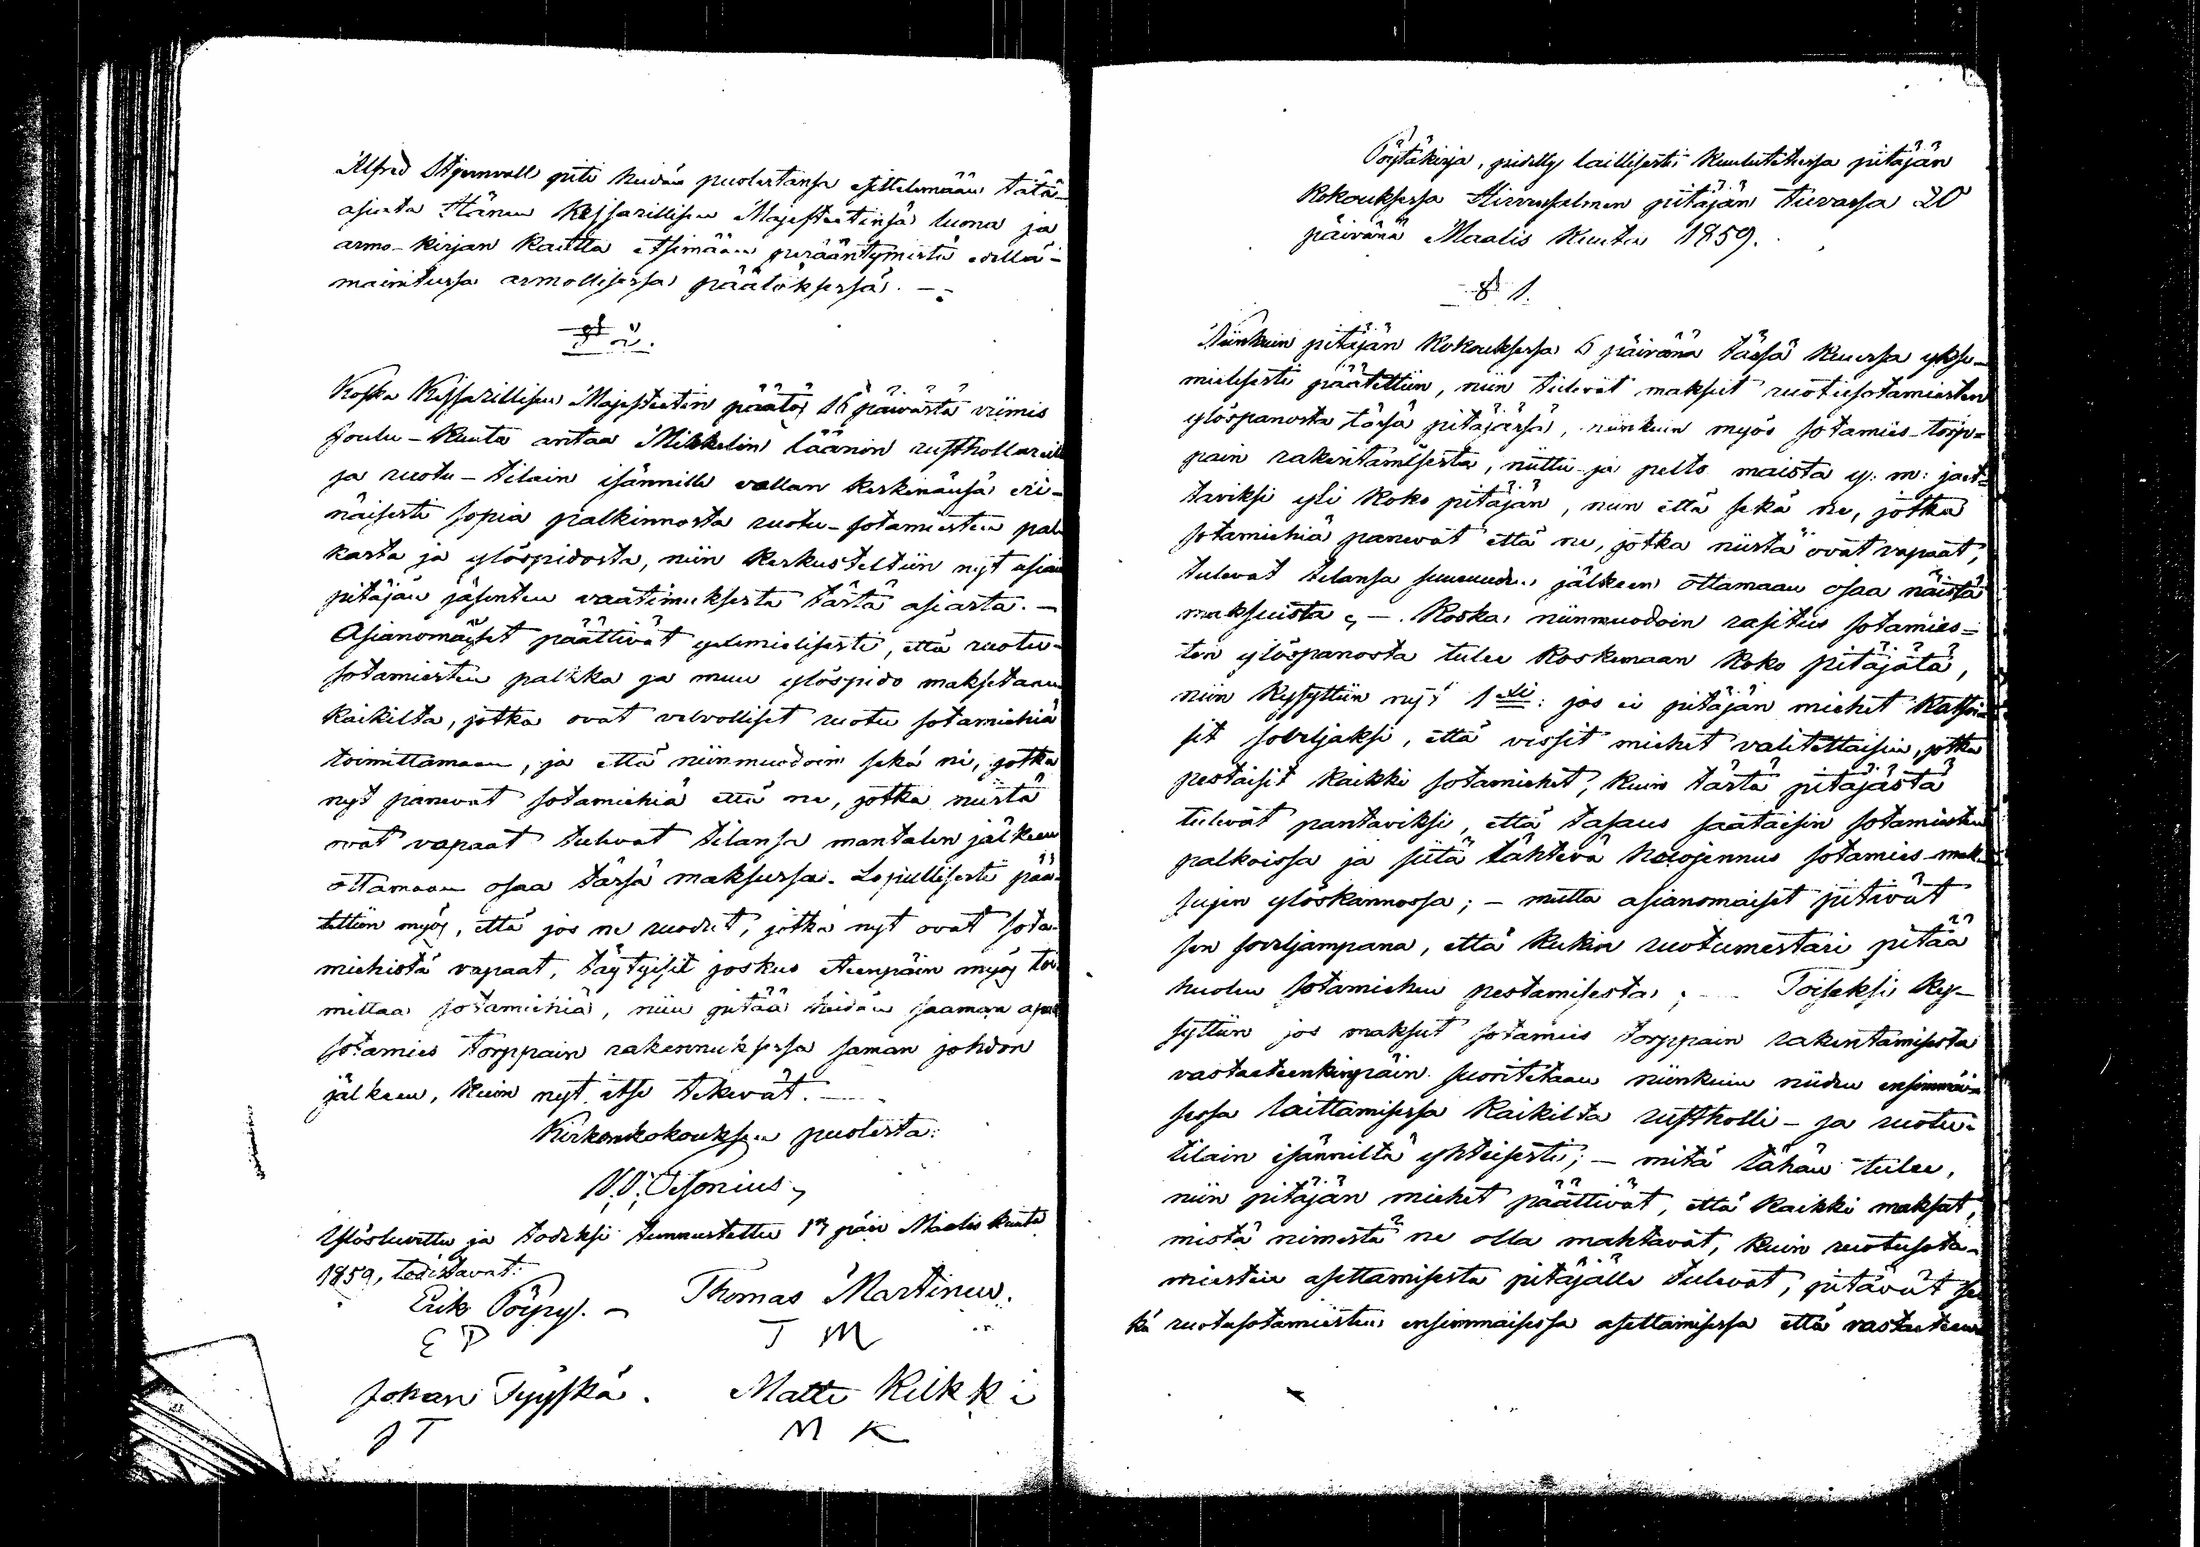 Alfred Stjernvall piti heidän puolestansa esittelemään tätä
asiata Hänen Keisarillisen Majesteetinsä luona ja
armo-kirjan kautta etsimään perääntymistä edellä-
mainitussa armollisessa päätöksessä. —
§ 2.
Koska Keisarillisen Majesteetin päätös 16 päivästä viimis
Joulu-kuuta antaa Mikkelin läänin rusthollareille
ja ruotu-tilain isännille vallan keskenänsä eri-
näisesti sopia palkinnosta ruotu-sotamiesten pal-
kasta ja ylöspidosta, niin keskusteltiin nyt asian
pitäjän jäsenten vaatimuksesta tästä asiasta. —
Asianomaiset päättivät yxmielisesti, että ruotu-
sotamiesten palkka ja muu ylöspido maksetaan
kaikilta, jotka ovat velvolliset ruotu sotamiehiä
toimittamaan, ja että niinmuodoin sekä ne, jotka
nyt panevat sotamiehiä että ne, jotka niistä
ovat vapaat tulevat tilansa mantalin jälkeen
ottamaan osaa tässä maksussa. Lopullisesti pää-
tettiin myös, että jos ne ruodut, jotka nyt ovat sota-
miehistä vapaat, täytyisit joskus eteenpäin myös toi-
mittaa sotamiehiä, niin pitää heidän saaman apua
sotamies torppain rakennuksessa saman johdon
jälkeen, kuin nyt itse tekevät. —
Kirkonkokouksen puolesta:
Ylösluettu ja todeksi tunnustettu 27 päiv Maalis kuuta
1859, todistavat:
Erik Pöyry. — Thomas Martinen.
E P T M
Johan Tyyskä. Matti Kilkki
J T M K
Pöytäkirja, pidetty laillisesti kuulutetussa pitäjän
kokouksessa Hirvensalmen pitäjän tuvassa 20
päivänä Maalis kuuta 1859.
§ 1.
Niinkuin pitäjän kokouksessa 6 päivänä tässä kuussa yksi-
mielisesti päätettiin, niin tulevat maksut ruotusotamiesten
ylöspanosta tässä pitäjässä, niinkuin myös sotamies-torp-
pain rakentamisesta, niittu- ja pelto maista y: m: jaet-
taviksi yli koko pitäjän, niin että sekä ne, jotka
sotamiehiä panevat että ne, jotka niistä ovat vapaat,
tulevat tilansa suuruuden jälkeen ottamaan osaa näistä
maksuista; —. Koska niinmuodoin rasitus sotamies-
ten ylöspanosta tulee koskemaan koko pitäjätä,
niin kysyttiin nyt 1ksi: jos ei pitäjän miehet katsoi-
sit soveljaksi, että vissit miehet valitettaisiin, jotka
pestaisit kaikki sotamiehet, kuin tästä pitäjästä
tulevat pantaviksi, että tasaus saataisiin sotamiesten
palkoissa ja siitä lähtevä huojennus sotamies-mak-
sujen ylöskannossa; — mutta asianomaiset pitivät
sen soveljampana, että kukin ruotumestari pitää
huolen sotamiehen pestamisesta; — Toiseksi ky-
syttiin jos maksut sotamies torppain rakentamisesta
vastaeteenkinpäin suoritetaan niinkuin niiden ensimmäi-
sessä laittamisessa kaikilta rustholli- ja ruotu-
tilain isänniltä yhteisesti; — mitä tähän tulee,
niin pitäjän miehet päättivät, että kaikki maksut,
mistä nimestä ne olla mahtavat, kuin ruotusota-
miesten asettamisesta pitäjälle tulevat, pitävät se-
kä ruotusotamiesten ensimmäisessä asettamisessa että vastaeteen